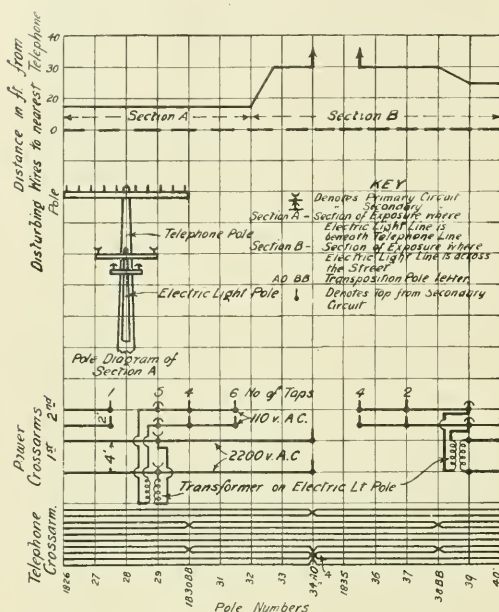 Distance in ft. from
Disturbing Wires to nearest Telephone
Pole
40
30
20
0
Section A
Section B
KEY
Denotes Primary Circuit
" Secondary "
Section A - Section of Exposure where
Electric Light Line is
beneath Telephone Line
Section B - Section of Exposure where
Electric Light Line is across
the Street
AD BB Transposition Pole Letter.
Denotes Tap from Secondary
Circuit
Telephone Pole
Electric Light Pole
Pole Diagram of
Section A
1 5 4 6 No of Taps 4 2
Power
Crossarms
1st 2nd
2'
110 v. A.C.
4'
2200 v. A.C
Transformer on Electric Lt Pole
Telephone
Crossarm.
1826 27 28 29 1830BB 31 32 33 34AD 1835 36 37 38BB 39 40
Pole Numbers